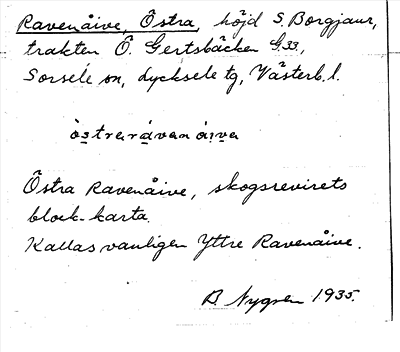 Ravenåive, Östra, höjd S. Borgjaur,
trakten Ö. Gertsbäcken G.33.,
Sorsele sn, Lycksele tg, Västerb. l.
òstrarávanáiva
Östra Ravenåive, skogsrevirets
block-karta.
Kallas vanligen Yttre Ravenåive.
B. Nygren 1935.